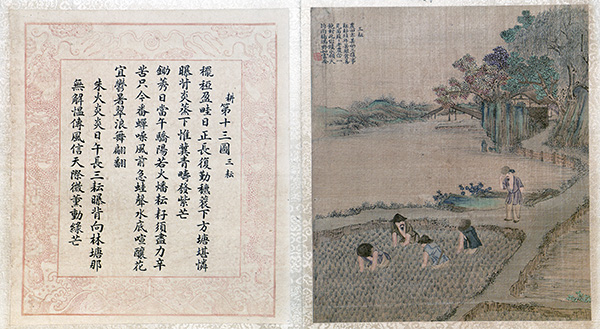 耕 第十三圖 三耘
穲稏盈畦日正長復勤穮蓘下方塘堪憐
曝背炎蒸下惟冀青疇發紫芒
鋤莠日當午驕陽若火燔耘耔須盡力辛
苦只今番蟬噪風前急蛙聲水底喧釀花
宜鬱暑翠浪舞翩翻
朱火炎炎日午長三耘曝背向林塘那
無解慍傳風信天際微薰動綠芒
三耘